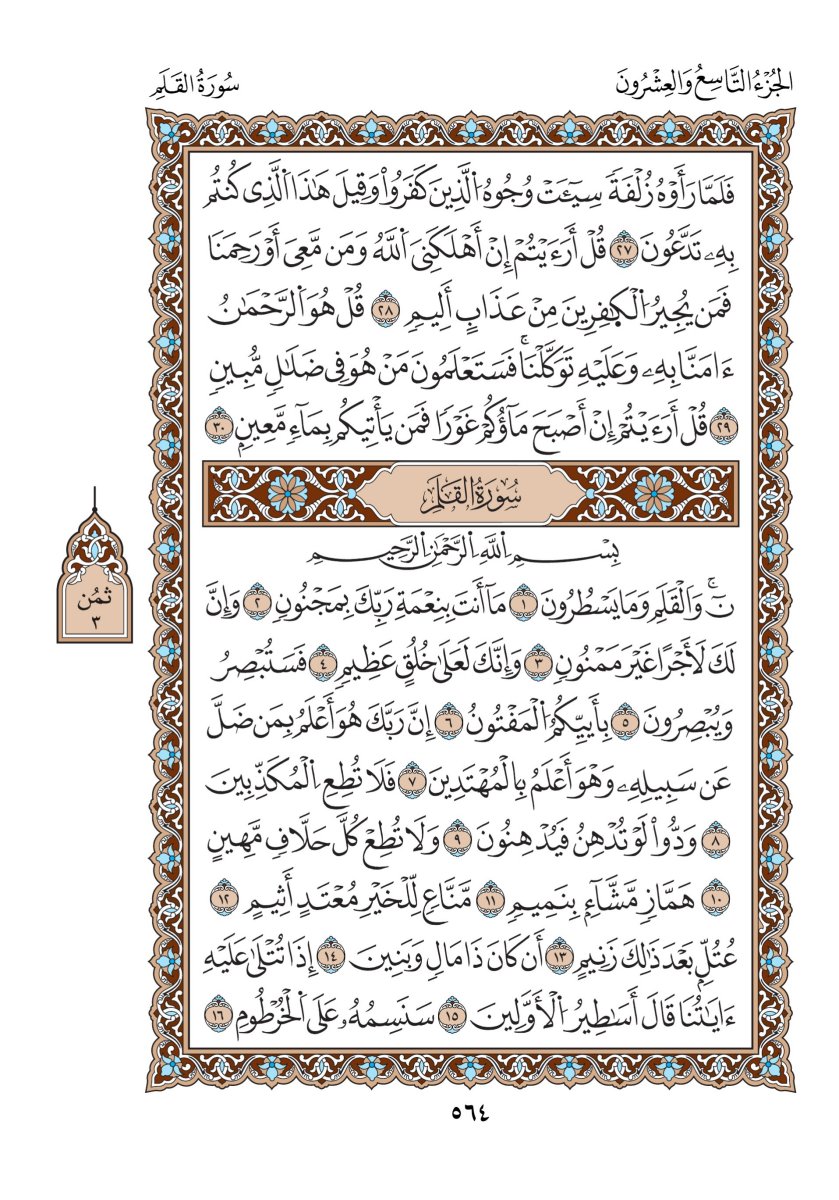 الجُزْءُ التَّاسِعُ وَالعِشْرُونَ
سُورَةُ القَلَمِ
فَلَمَّا رَأَوۡهُ زُلۡفَةٗ سِيٓـَٔتۡ وُجُوهُ اُ۬لَّذِينَ كَفَرُواْ وَقِيلَ هَٰذَا اَ۬لَّذِي كُنتُم
بِهِۦ تَدَّعُونَ ٢٧ قُلۡ أَرَءَيۡتُمۡ إِنۡ أَهۡلَكَنِيَ اَ۬للَّهُ وَمَن مَّعِيَ أَوۡ رَحِمَنَا
فَمَن يُجِيرُ اُ۬لۡكٜفِرِينَ مِنۡ عَذَابٍ أَلِيمٖ ٢٨ قُلۡ هُوَ اَ۬لرَّحۡمَٰنُ
ءَامَنَّا بِهِۦ وَعَلَيۡهِ تَوَكَّلۡنَاۚ فَسَتَعۡلَمُونَ مَنۡ هُوَ فِي ضَلَٰلٖ مُّبِينٖ
٢٩ قُلۡ أَرَءَيۡتُمۡ إِنۡ أَصۡبَحَ مَآؤُكُمۡ غَوۡرٗا فَمَن يَأۡتِيكُم بِمَآءٖ مَّعِينٖ ٣٠
سُورَةُ القَلَمِ
بِسۡمِ اِ۬للَّهِ اِ۬لرَّحۡمَٰنِ اِ۬لرَّحِيمِ
نٓۚ وَالۡقَلَمِ وَمَا يَسۡطُرُونَ ١ مَآ أَنتَ بِنِعۡمَةِ رَبِّكَ بِمَجۡنُونٖ ٢ وَإِنَّ
لَكَ لَأَجۡرًا غَيۡرَ مَمۡنُونٖ ٣ وَإِنَّكَ لَعَلَىٰ خُلُقٍ عَظِيمٖ ٤ فَسَتُبۡصِرُ
ثُمُن
٣
وَيُبۡصِرُونَ ٥ بِأَييِّكُمُ اُ۬لۡمَفۡتُونُ ٦ إِنَّ رَبَّكَ هُوَ أَعۡلَمُ بِمَن ضَلَّ
عَن سَبِيلِهِۦ وَهۡوَ أَعۡلَمُ بِالۡمُهۡتَدِينَ ٧ فَلَا تُطِعِ اِ۬لۡمُكَذِّبِينَ
٨ وَدُّواْ لَوۡ تُدۡهِنُ فَيُدۡهِنُونَ ٩ وَلَا تُطِعۡ كُلَّ حَلَّافٖ مَّهِينٍ
١٠ هَمَّازٖ مَّشَّآءِۭ بِنَمِيمٖ ١١ مَّنَّاعٖ لِّلۡخَيۡرِ مُعۡتَدٍ أَثِيمٍ ١٢
عُتُلِّۭ بَعۡدَ ذَٰلِكَ زَنِيمٍ ١٣ أَن كَانَ ذَا مَالٖ وَبَنِينَ ١٤ إِذَا تُتۡلَىٰ عَلَيۡهِ
ءَايَٰتُنَا قَالَ أَسَٰطِيرُ اُ۬لۡأَوَّلِينَ ١٥ سَنَسِمُهُۥ عَلَى اَ۬لۡخُرۡطُومِ ١٦
٥٦٤